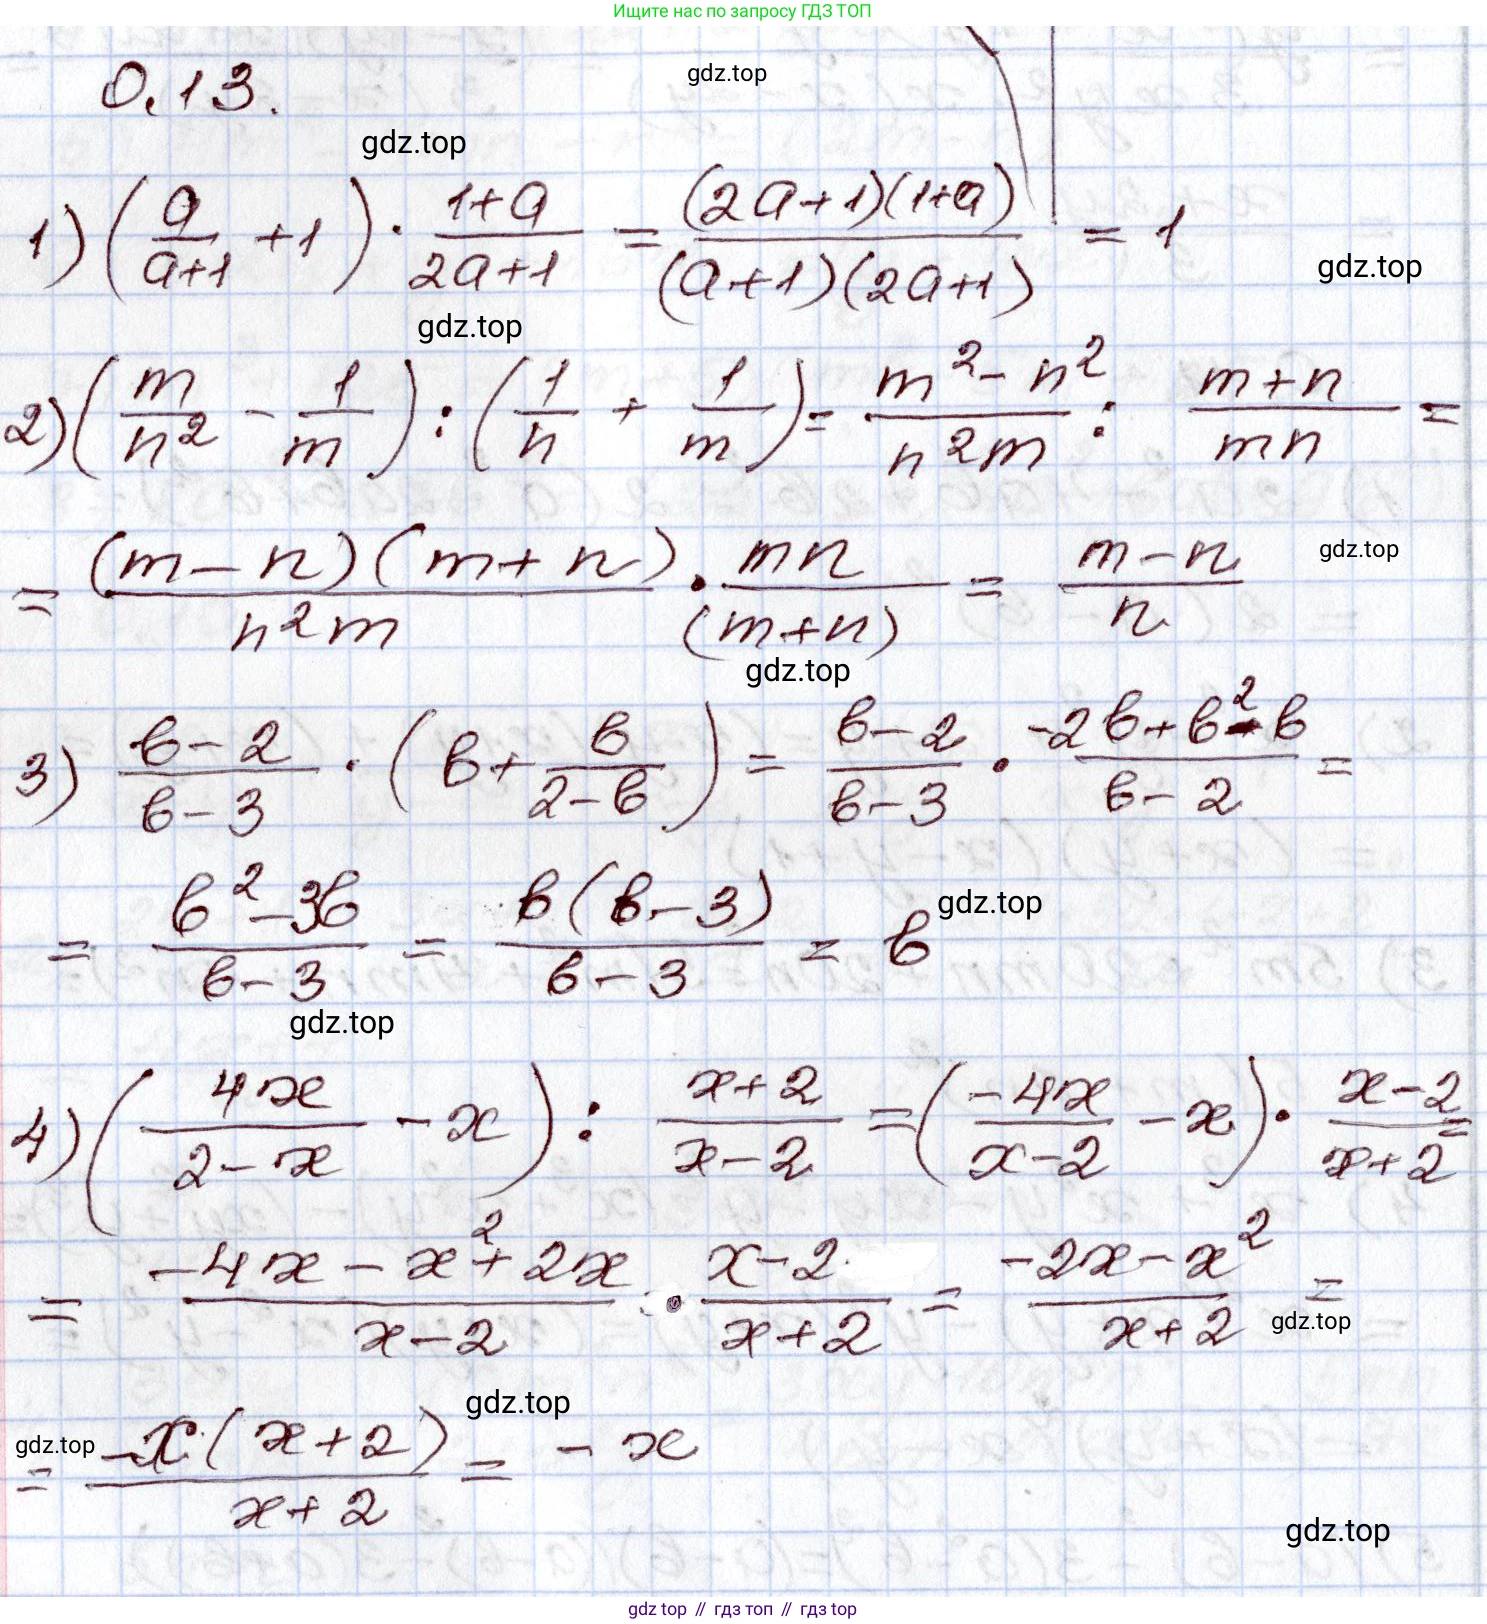 Ищите нас по запросу ГДЗ ТОП
0.13.
gdz.top
gdz.top
1) (a/(a+1) + 1) · (1+a)/(2a+1) = (2a+1)(1+a)/((a+1)(2a+1)) = 1
gdz.top
gdz.top
2) (m/n² - 1/m) : (1/n + 1/m) = (m² - n²)/(n²m) : (m+n)/(mn) =
= (m-n)(m+n)/(n²m) · mn/(m+n) = (m-n)/n
gdz.top
gdz.top
3) (в-2)/(в-3) · (в + в/(2-в)) = (в-2)/(в-3) · (-2в+в²-в)/(в-2) =
= (в²-3в)/(в-3) = в(в-3)/(в-3) = в
gdz.top
gdz.top
4) (4x/(2-x) - x) : (x+2)/(x-2) = (-4x/(x-2) - x) · (x-2)/(x+2) =
= (-4x-x²+2x)/(x-2) · (x-2)/(x+2) = (-2x-x²)/(x+2) =
gdz.top
gdz.top
gdz.top
= -x(x+2)/(x+2) = -x
gdz.top
gdz top // гдз топ // гдз top